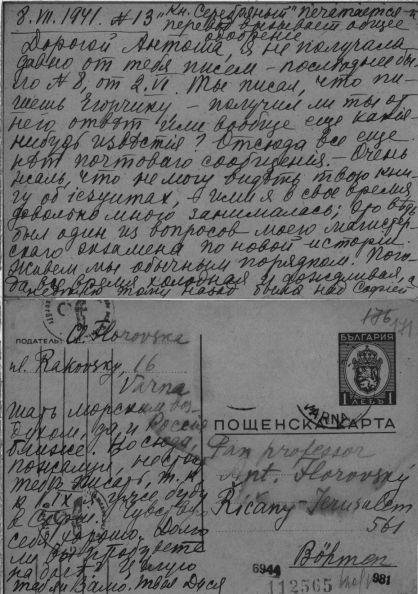 8. VII. 1941. № 13 "Кн. Серебряный" печатается -
перевод вызывает общее
одобрение
Дорогой Антоша, я не получала
давно от тебя писем - последнее бы
его № 8, от 2. VI. Ты писал, что пи
шешь Егорчику - получил ли ты от
него ответ или вообще еще какие
нибудь известия? Отсюда все еще
нет почтоваго сообщения. - Очень
жаль, что не могу видеть твою кни
гу об іезуитах, я ими в свое время
довольно много занималась; это
был один из вопросов моего магистер
скаго экзамена по новой истории.
Живем мы обычным порядком. Пого
да все время холодная и дождливая,
тому назад была над Софией
Податель: Cl. Florovska
ул. Rakovsky, 16
Varna
шать морским воз
духом, да и Россия
ближе. Но сюда,
пожалуй, не стоит
тебе писать, т. к.
к 1. IX. буду
в Софии. Чувствую
себя хорошо. Долго
ли вы пробудете
на Целую
тебя и Вамо. твоя Дися
176
171
БЪЛГАРИЯ
1 ЛЕВЪ 1
VARNA
ПОЩЕНСКА КАРТА
Pan professor
Ant. Florovsky
Řičany - Jerusalem
561
Böhmen
6944
112565
981